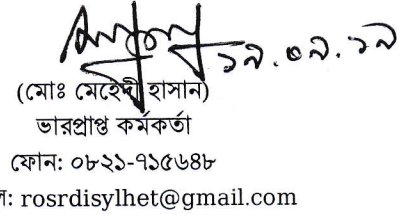 ১৯.০৯.১৯
(মোঃ মেহেদী হাসান)
ভারপ্রাপ্ত কর্মকর্তা
ফোন: ০৮২১-৭১৫৬৪৮
ল: rosrdisylhet@gmail.com